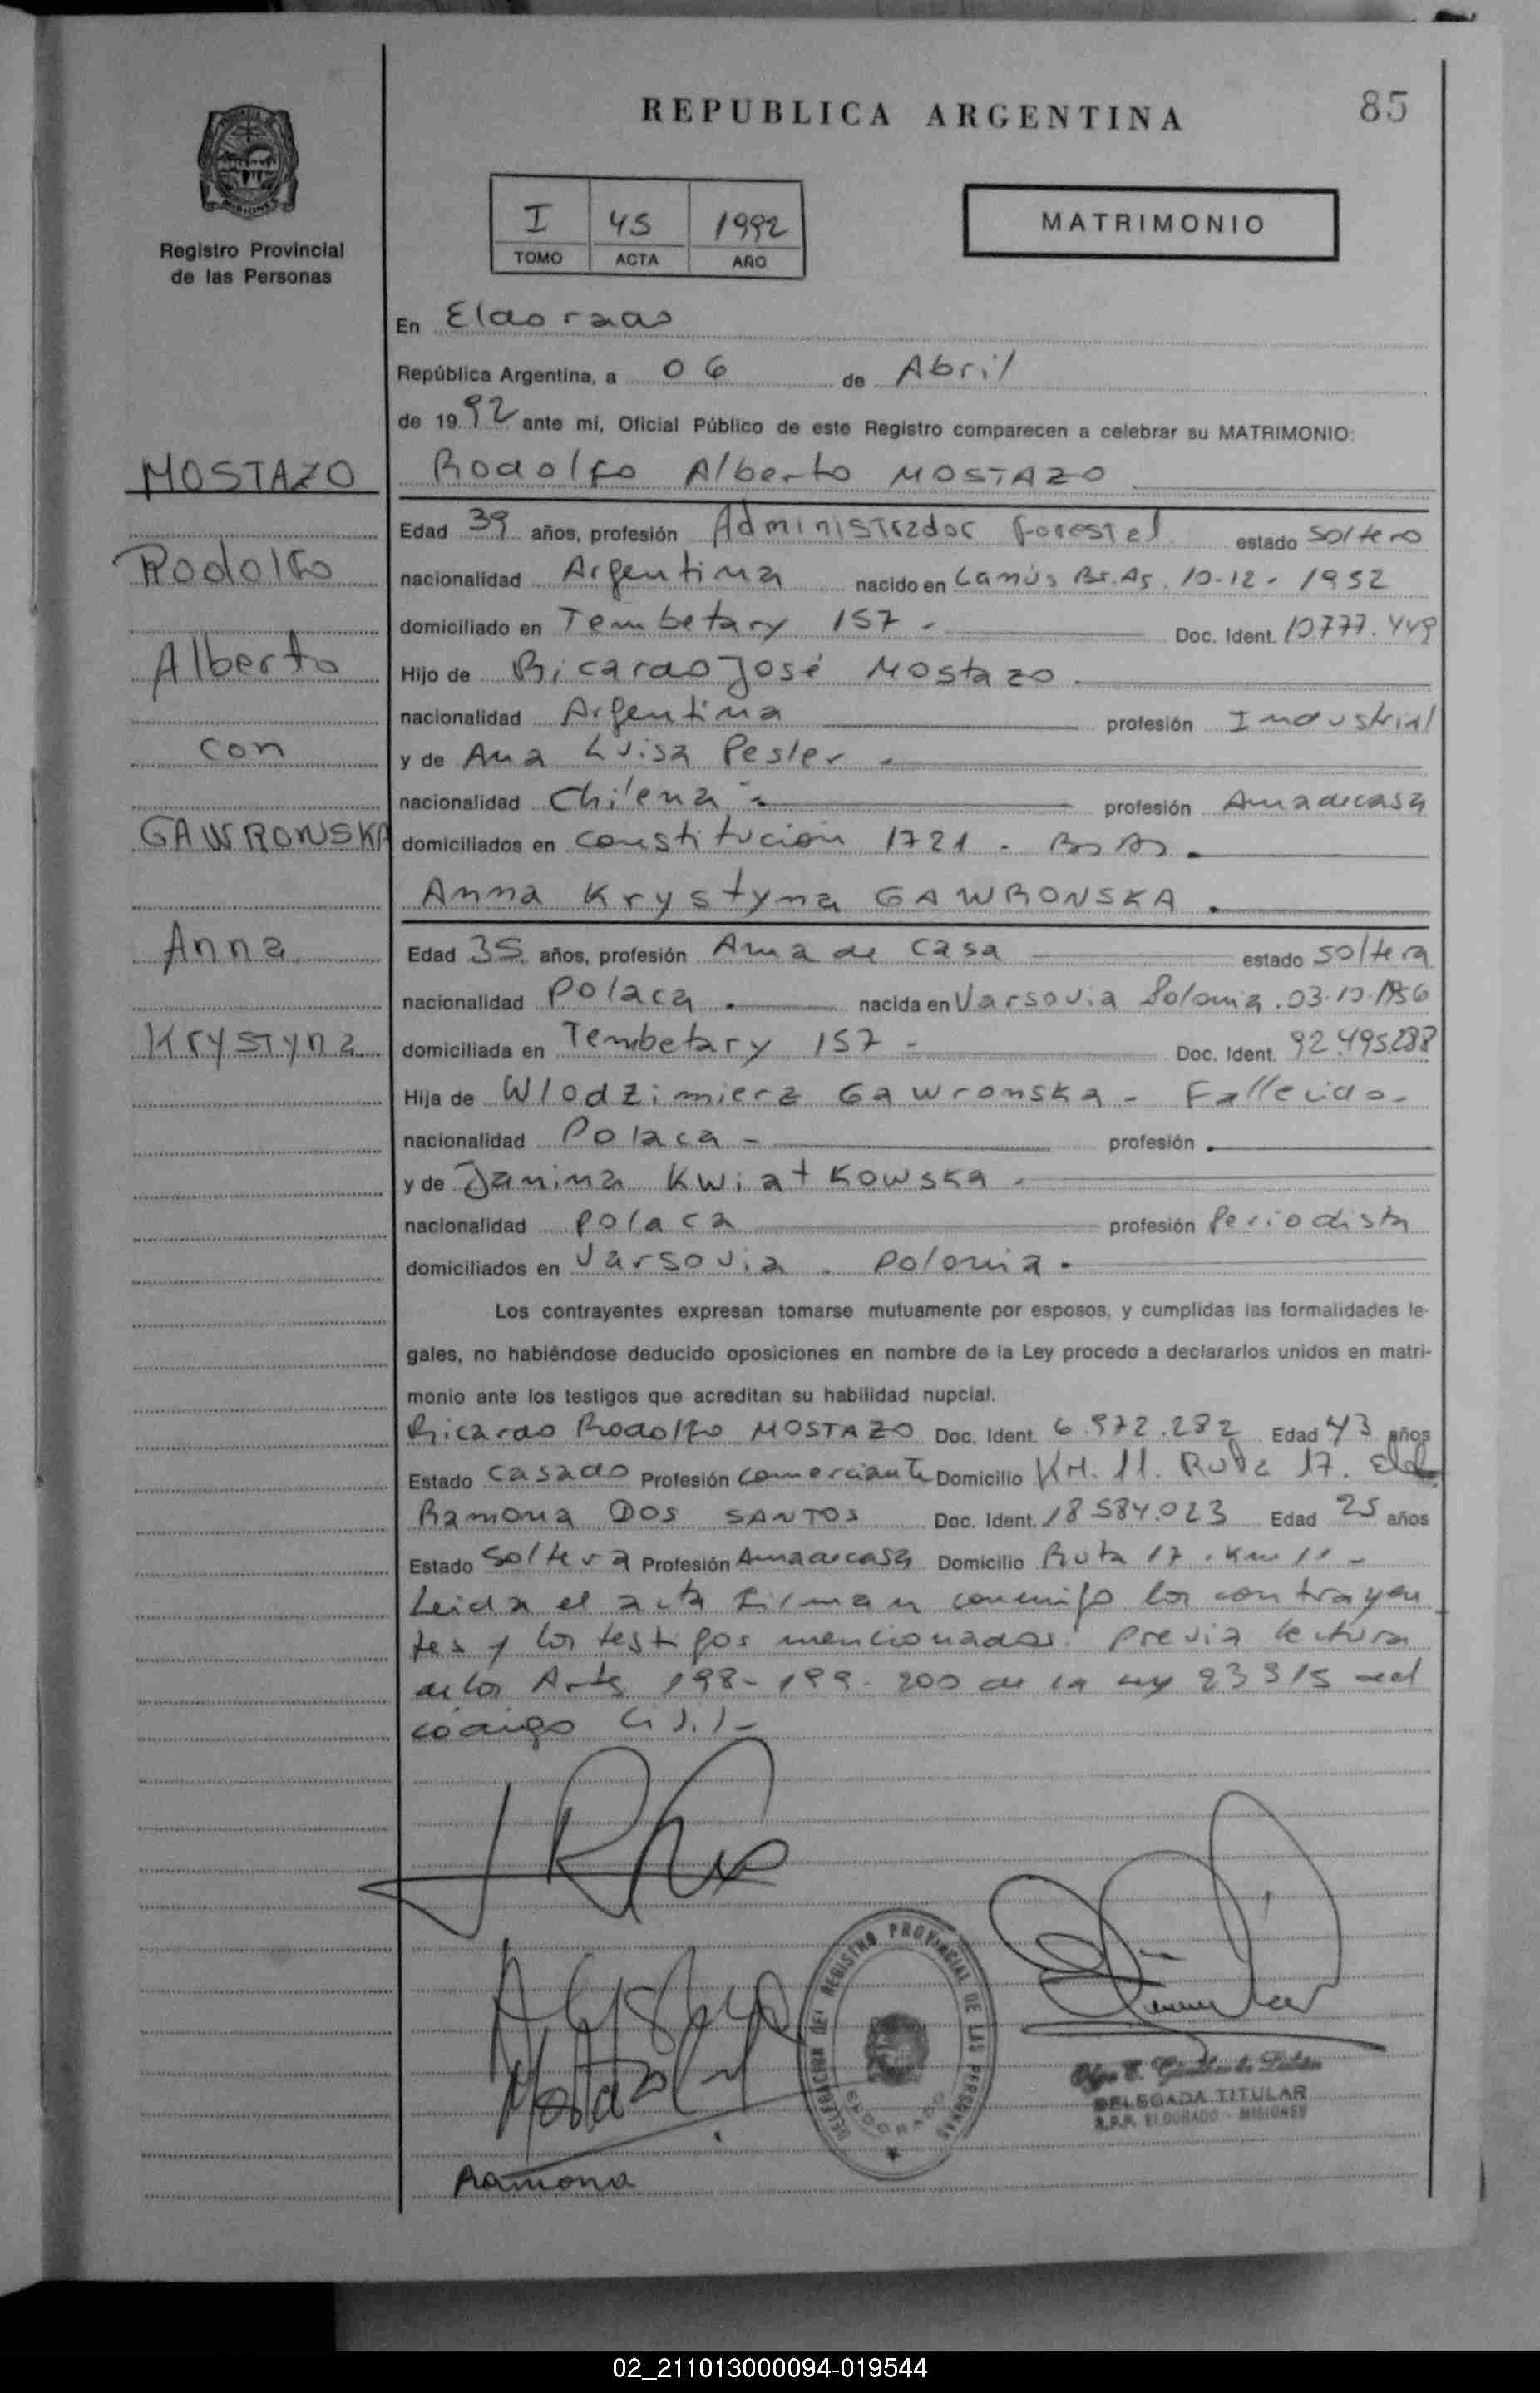 REPUBLICA ARGENTINA
85
I 45 1992
TOMO ACTA AÑO
MATRIMONIO
MISIONES
Registro Provincial
de las Personas
En Eldorado
República Argentina, a 06 de Abril
de 1992 ante mi, Oficial Público de este Registro comparecen a celebrar su MATRIMONIO:
MOSTAZO
Rodolfo
Alberto
con
GAWRONSKA
Anna
Krystyna
Rodolfo Alberto MOSTAZO
Edad 39 años, profesión Administrador forestal estado soltero
nacionalidad Argentina nacido en Lanús Bs. As. 10-12-1952
domiciliado en Tembetary 157 - Doc. Ident. 10.777.449
Hijo de Ricardo José Mostazo
nacionalidad Argentina profesión Industrial
y de Ana Luisa Pesler
nacionalidad Chilena profesión Ama de casa
domiciliados en constitución 1721 - Bs As
Anna Krystyna GAWRONSKA
Edad 35 años, profesión Ama de casa estado soltera
nacionalidad Polaca nacida en Varsovia Polonia. 03-10-1956
domiciliada en Tembetary 157 - Doc. Ident. 92.495.288
Hija de Wlodzimierz Gawronska - Fallecido -
nacionalidad Polaca - profesión
y de Janina Kwiatkowska
nacionalidad polaca profesión Periodista
domiciliados en Varsovia - Polonia.
Los contrayentes expresan tomarse mutuamente por esposos, y cumplidas las formalidades le-
gales, no habiéndose deducido oposiciones en nombre de la Ley procedo a declararlos unidos en matri-
monio ante los testigos que acreditan su habilidad nupcial.
Ricardo Rodolfo MOSTAZO Doc. Ident. 6.972.282 Edad 43 años
Estado casado Profesión comerciante Domicilio KM. 11. Ruta 17. Eld
Ramona DOS SANTOS Doc. Ident. 18.584.023 Edad 25 años
Estado soltera Profesión Ama de casa Domicilio Ruta 17. Km 11 -
Leida el acta firman conmigo los contrayen
tes y los testigos mencionados. previa lectura
de los Arts 198-199-200 de la ley 23315 del
código Civil-
DELEGACION DEL REGISTRO PROVINCIAL DE LAS PERSONAS
ELDORADO
Mostazo
Olga E.
DELEGADA TITULAR
R.P.P. ELDORADO - MISIONES
Ramona
02_211013000094-019544